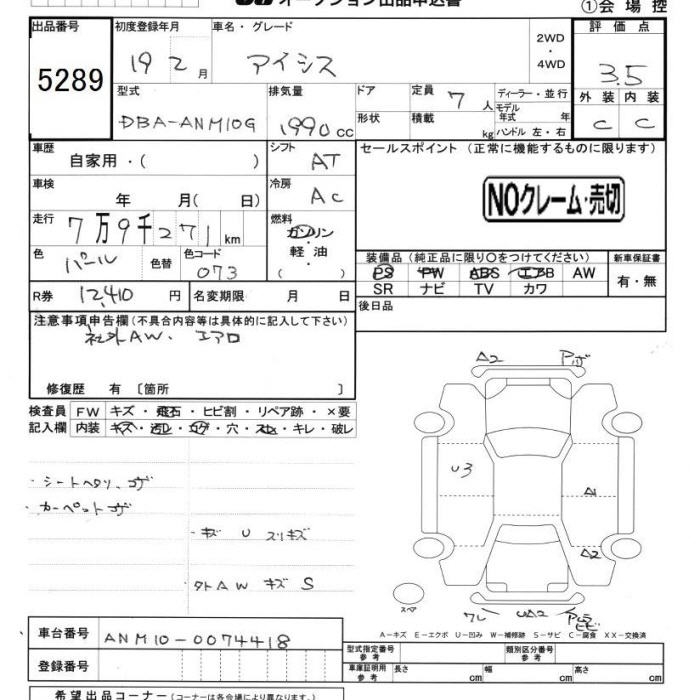 オークション出品申込書
①会場控
出品番号 初度登録年月 車名・グレード 2WD・4WD 評価点
5289 19 2月 アイシス 3.5
型式 排気量 ドア 定員 7人 ディーラー・並行 外装 内装
DBA-ANM10G 1990cc 形状 積載 kg モデル年式 年 ハンドル 左・右 C C
車歴 自家用・( ) シフト AT セールスポイント (正常に機能するものに限ります)
車検 年 月(日) 冷房 AC NOクレーム・売切
走行 7万9千271km 燃料 ガソリン 軽油 ( )
色 パール 色替 色コード 073 装備品 (純正品に限り○をつけてください) 新車保証書
PS PW ABS エアB AW 有・無
SR ナビ TV カワ
R券 12,410円 名変期限 月 日 後日品
注意事項申告欄 (不具合内容等は具体的に記入して下さい)
社外AW、エアロ
修復歴 有 〔箇所 〕
検査員 FW キズ・飛石・ヒビ割・リペア跡・×要
記入欄 内装 キズ・汚レ・コゲ・穴・スレ・キレ・破レ
・シートヘタリ、コゲ
・カーペットコゲ
・キズ U スリキズ
タトAW キズ S
A2
U3
A1
A2
スペア
ワレ UA2
A-キズ E-エクボ U-凹み W-補修跡 S-サビ C-腐食 XX-交換済
車台番号 ANM10-0074418
型式指定番号 参考 類別区分番号 参考
登録番号 車庫証明用 参考 長さ cm 幅 cm 高さ cm
希望出品コーナー (コーナーは各会場により異なります。)